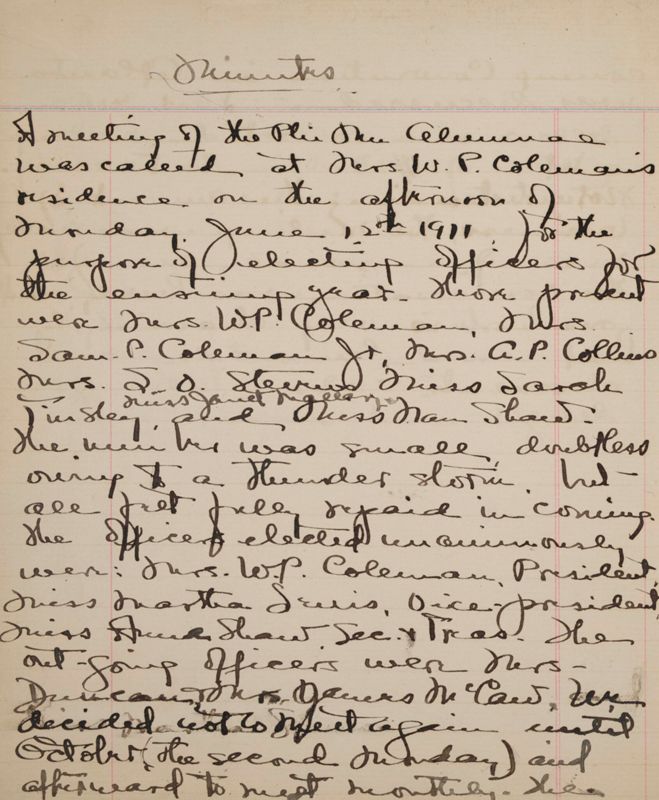 Minutes
A meeting of the Phi Mu Alumnae
was called at Mrs W. P. Coleman's
residence on the afternoon of
Monday, June 12th 1911 for the
purpose of electing officers for
the ensuing year. Those present
were Mrs. W.P. Coleman, Mrs.
Sam. P. Coleman Jr, Mrs. A. P. Collins
Mrs. S. D. Stevens Miss Sarah
Miss Janet
Tinsley, and Miss Nan Shaw.
The number was small, doubtless
owing to a thunder storm, but
all felt fully repaid in coming.
The officers elected unanimously
were: Mrs. W.P. Coleman, President,
Miss Martha Lewis, Vice-president,
Miss Shaw Sec. & Treas. The
out-going officers were Mrs-
Duncan, & Mrs. McCaw. We
decided not to meet again until
October (the second Monday) and
afterward to meet monthly. The